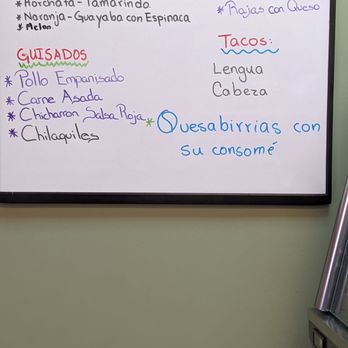 * Horchata - Tamarindo
* Naranja - Guayaba con Espinaca
* Melon
GUISADOS
* Pollo Empanisado
* Carne Asada
* Chicharron Salsa Roja
* Chilaquiles
* Rajas con Queso
Tacos:
Lengua
Cabeza
* Quesabirrias con
su consomé